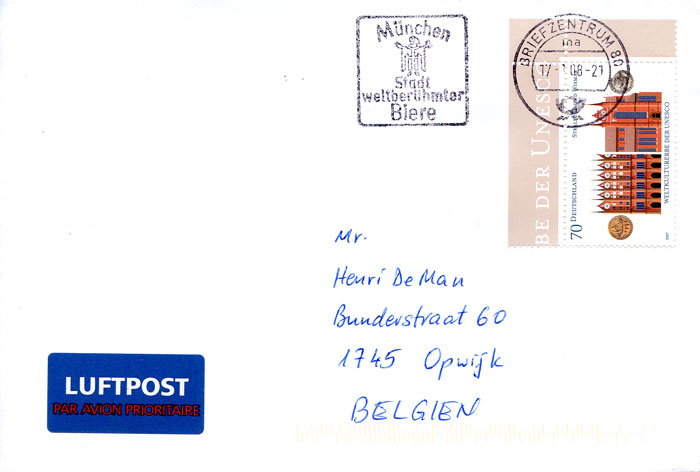 München
Stadt
weltberühmter
Biere
BRIEFZENTRUM 80
ma
17-1.08-21
BE DER UNESCO
70 DEUTSCHLAND
WELTKULTURERBE DER UNESCO
2007
Mr.
Henri DeMan
Bunderstraat 60
1745 Opwijk
BELGIEN
LUFTPOST
PAR AVION PRIORITAIRE